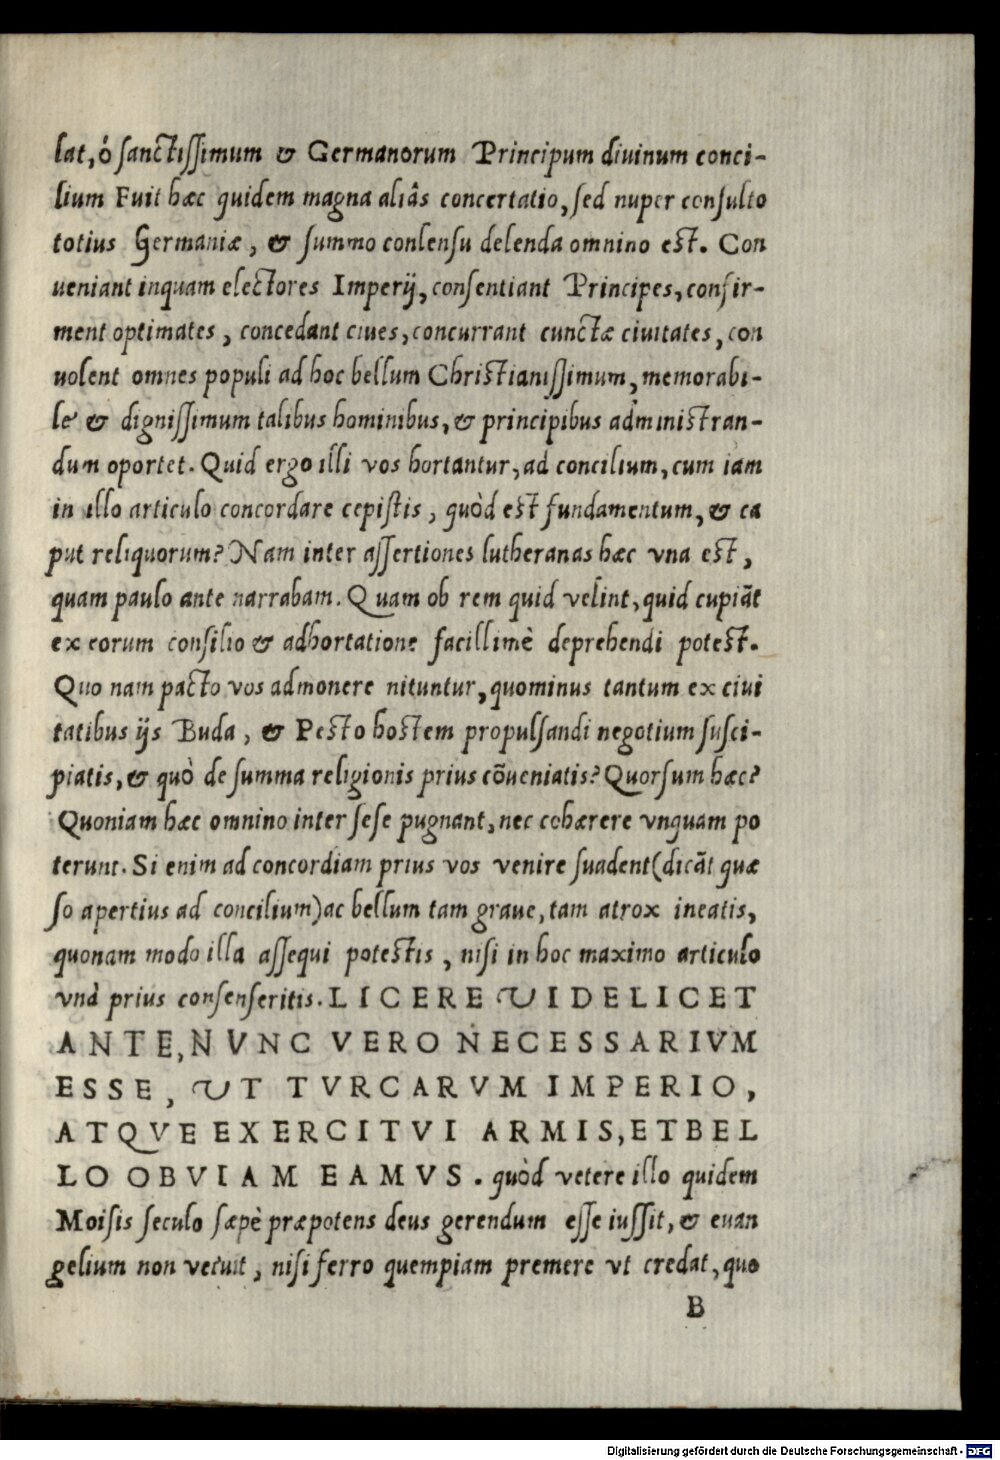 lat, ó sanctissimum & Germanorum Principum diuinum conci-
lium Fuit hæc quidem magna aliâs concertatio, sed nuper consulto
totius Germaniæ, & summo consensu delenda omnino est. Con
ueniant inquam electores Imperij, consentiant Principes, confir-
ment optimates, concedant ciues, concurrant cunctæ ciuitates, con
uolent omnes populi ad hoc bellum Christianissimum, memorabi-
le & dignissimum talibus hominibus, & principibus administran-
dum oportet. Quid ergo illi vos hortantur, ad concilium, cum iam
in illo articulo concordare cepistis, quòd est fundamentum, & ca
put reliquorum? Nam inter assertiones lutheranas hæc vna est,
quam paulo ante narrabam. Quam ob rem quid velint, quid cupiãt
ex eorum consilio & adhortatione facillimè deprehendi potest.
Quo nam pacto vos admonere nituntur, quominus tantum ex ciui
tatibus ijs Buda, & Pesto hostem propulsandi negotium susci-
piatis, & quò de summa religionis prius cõueniatis? Quorsum hæc?
Quoniam hæc omnino inter sese pugnant, nec cohærere vnquam po
terunt. Si enim ad concordiam prius vos venire suadent (dicãt quæ
so apertius ad concilium) ac bellum tam graue, tam atrox ineatis,
quonam modo illa assequi potestis, nisi in hoc maximo articulo
vnà prius consenseritis. LICERE VIDELICET
ANTE, NVNC VERO NECESSARIVM
ESSE, VT TVRCARVM IMPERIO,
ATQVE EXERCITVI ARMIS, ET BEL
LO OBVIAM EAMVS. quòd vetere illo quidem
Moisis seculo sæpè præpotens deus gerendum esse iussit, & euan
gelium non vetuit, nisi ferro quempiam premere vt credat, quo
B
Digitalisierung gefördert durch die Deutsche Forschungsgemeinschaft - DFG